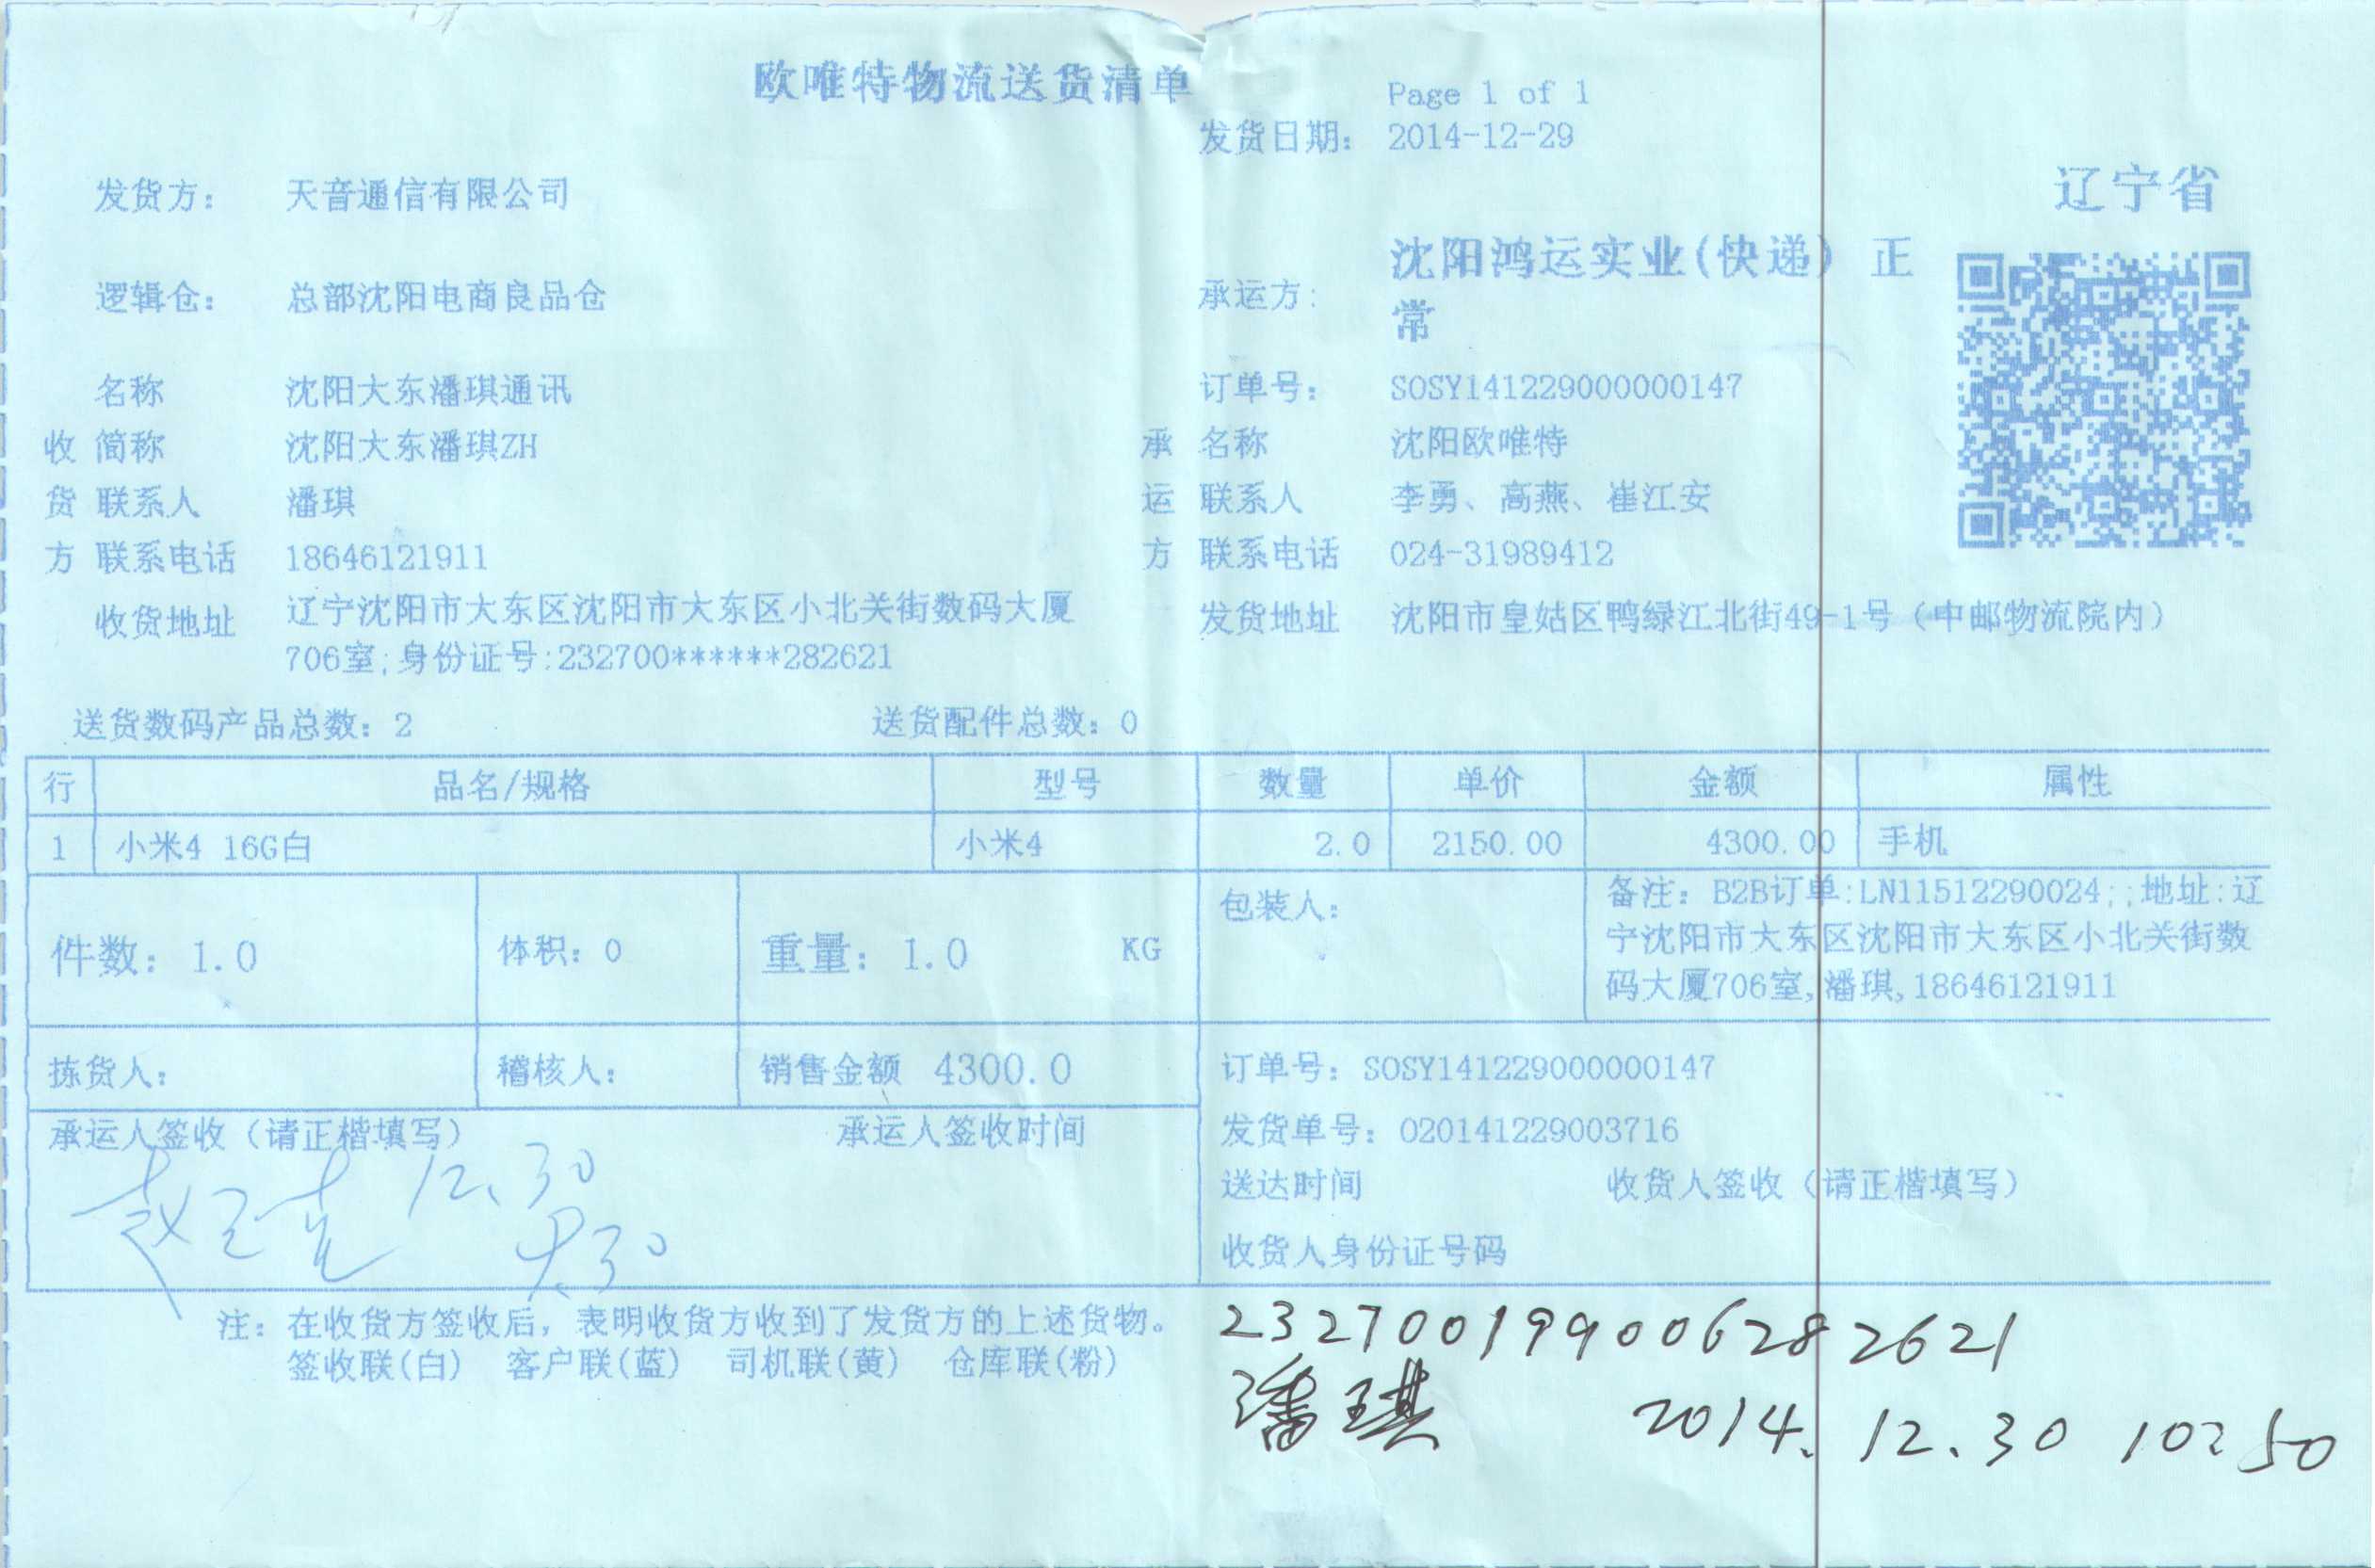 欧唯特物流送货清单
Page 1 of 1
发货日期： 2014-12-29
发货方： 天音通信有限公司
辽宁省
逻辑仓： 总部沈阳电商良品仓
承运方： 沈阳鸿运实业(快递) 正
常
名称 沈阳大东潘琪通讯
订单号： SOSY141229000000147
收 简称 沈阳大东潘琪ZH
承 名称 沈阳欧唯特
货 联系人 潘琪
运 联系人 李勇、高燕、崔江安
方 联系电话 18646121911
方 联系电话 024-31989412
收货地址 辽宁沈阳市大东区沈阳市大东区小北关街数码大厦
706室;身份证号:232700******282621
发货地址 沈阳市皇姑区鸭绿江北街49-1号（中邮物流院内）
送货数码产品总数：2 送货配件总数：0
行 品名/规格 型号 数量 单价 金额 属性
1 小米4 16G白 小米4 2.0 2150.00 4300.00 手机
件数：1.0 体积：0 重量：1.0 KG 包装人：
备注：B2B订单:LN11512290024;;地址:辽
宁沈阳市大东区沈阳市大东区小北关街数
码大厦706室,潘琪,18646121911
拣货人： 稽核人： 销售金额 4300.0
订单号：SOSY141229000000147
承运人签收（请正楷填写） 承运人签收时间
发货单号：020141229003716
12.30
送达时间 收货人签收（请正楷填写）
收货人身份证号码
注：在收货方签收后，表明收货方收到了发货方的上述货物。
签收联(白) 客户联(蓝) 司机联(黄) 仓库联(粉)
232700199006282621
潘琪 2014.12.30 10:50